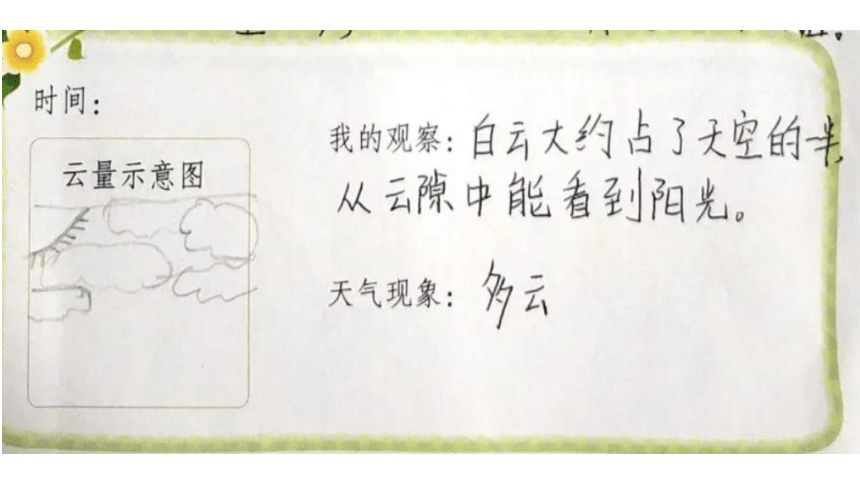 时间：
云量示意图
我的观察：白云大约占了天空的一半，
从云隙中能看到阳光。
天气现象：多云